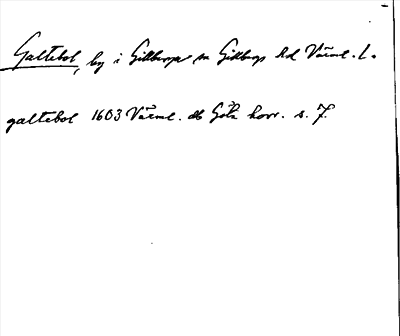 Galtebol, by i Gillberga sn Gillbergs hd Värml. l.
galtebol 1603 Värml. db Göta hovr. s. 7.